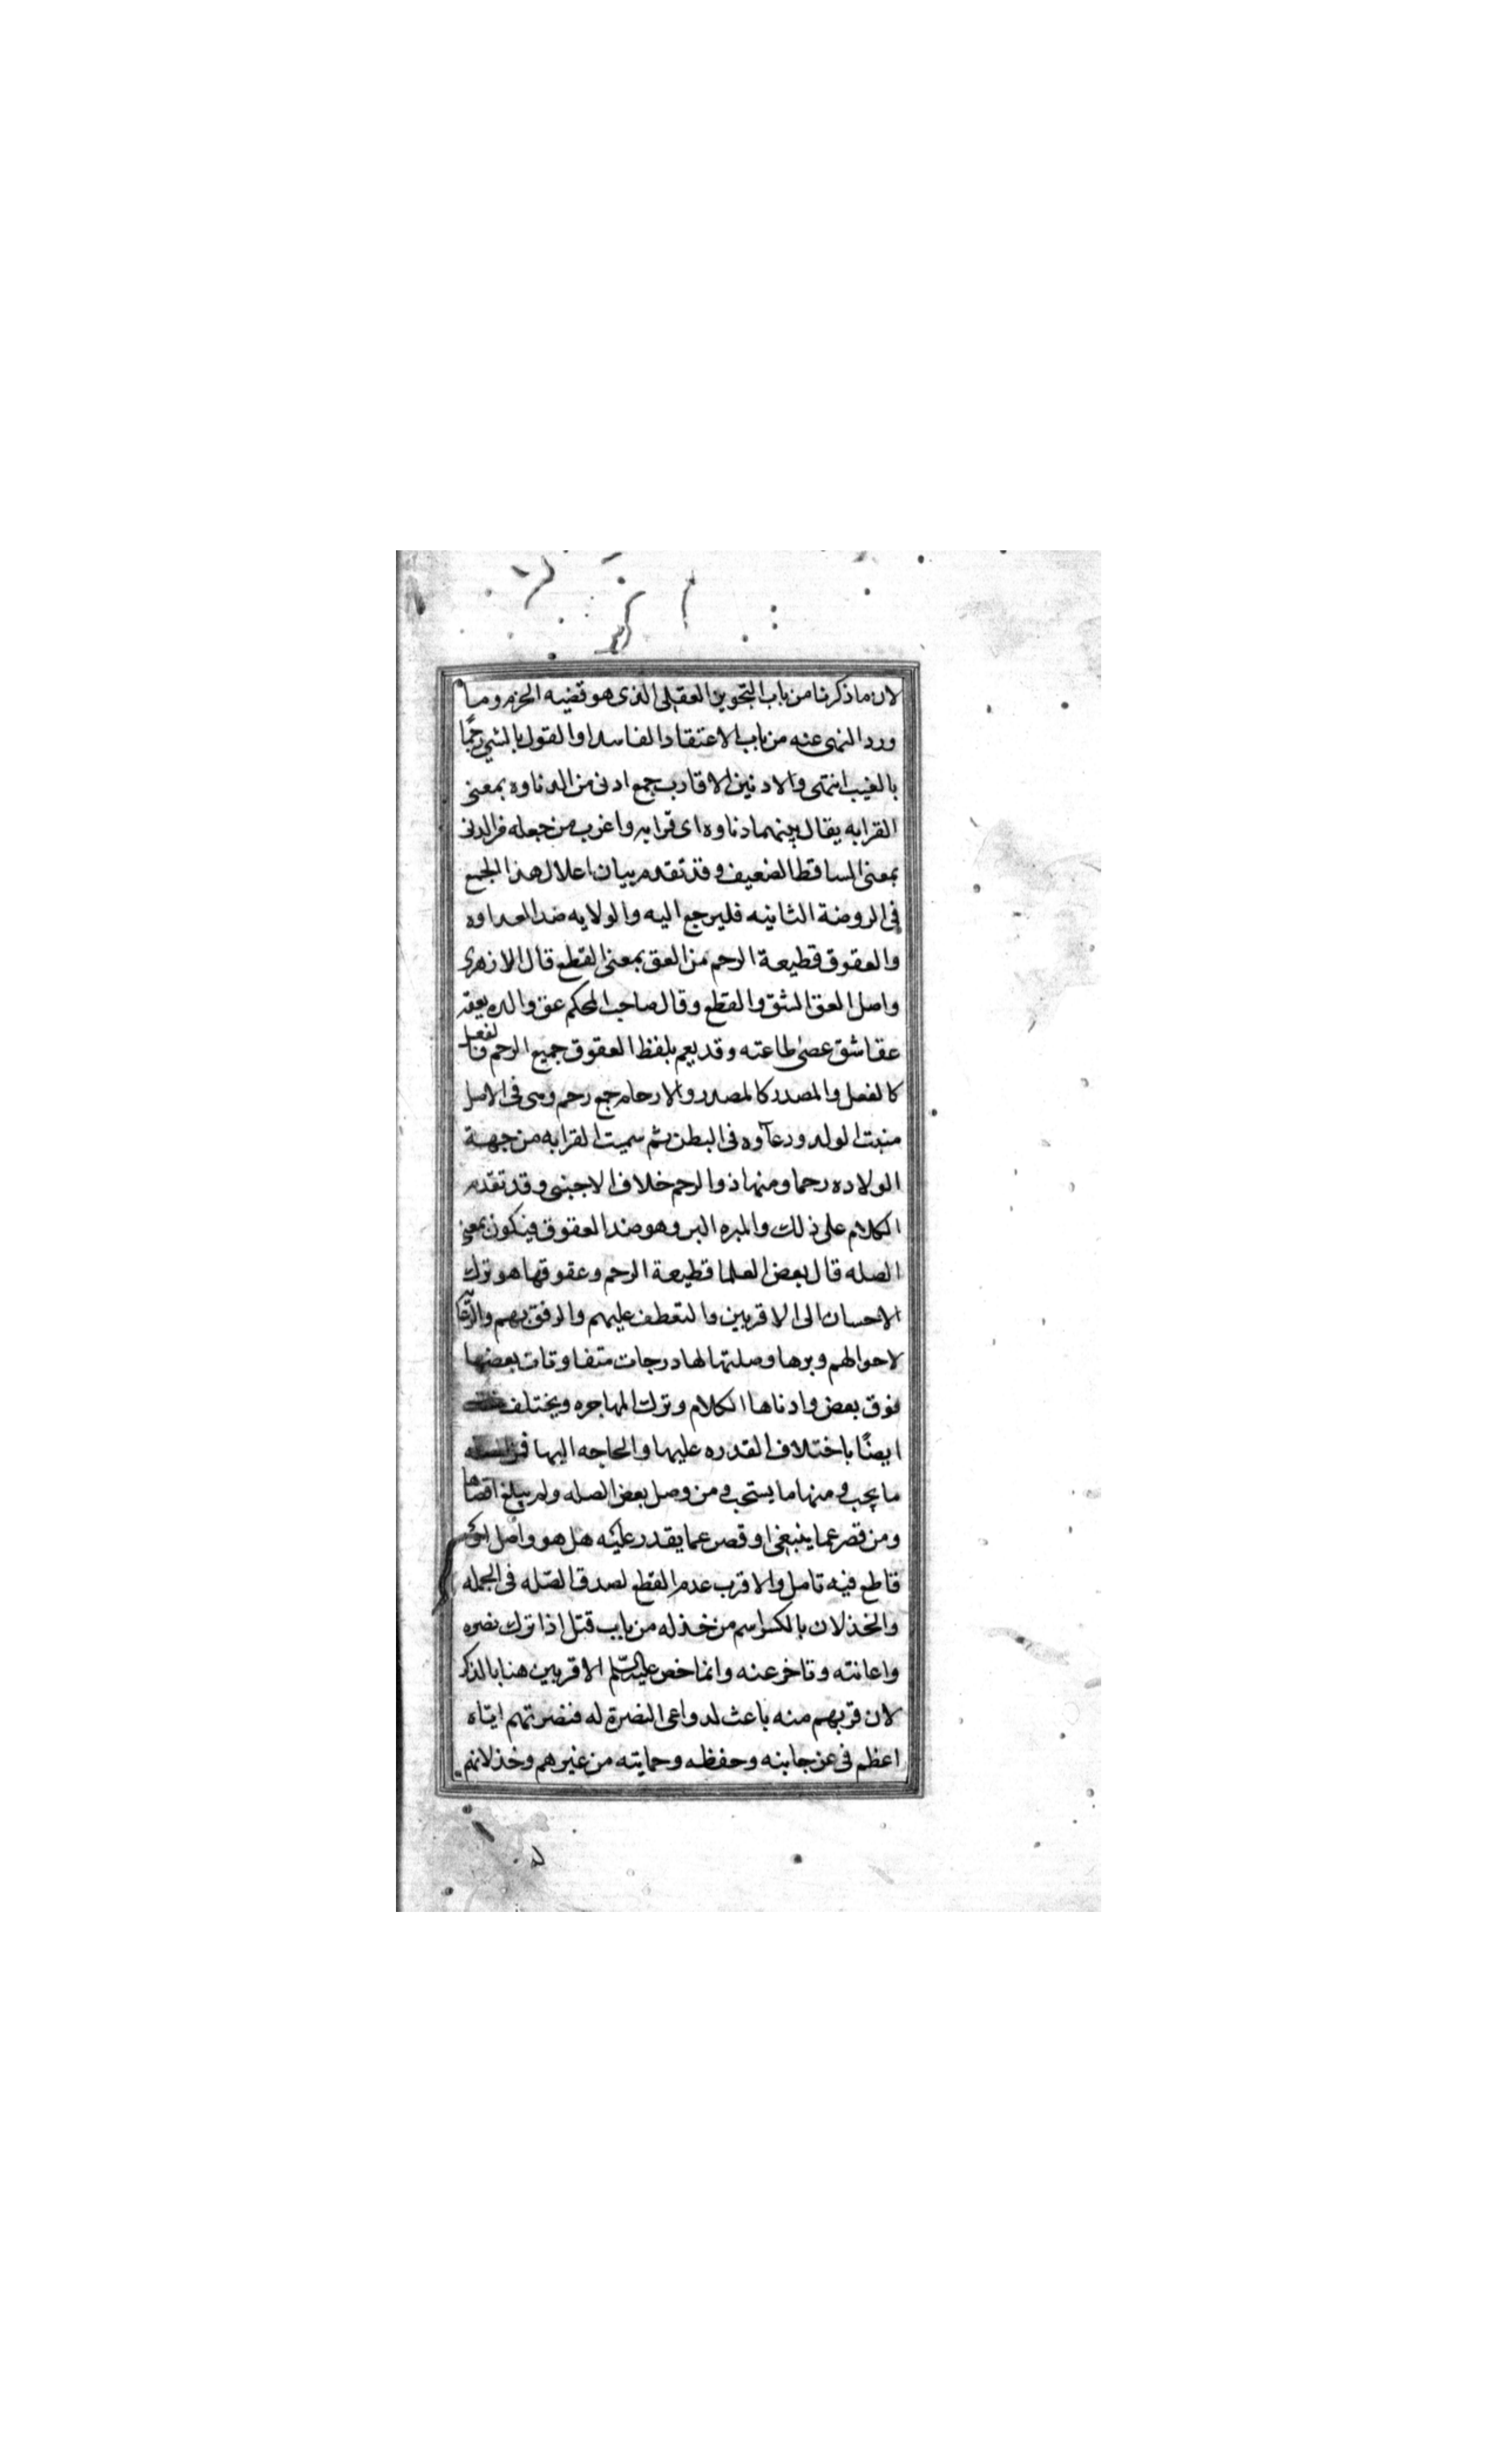 لان ما ذكرنا من باب التجويز العقلى الذى هو قضيه الحزم وما
ورد النهى عنه من باب الاعتقاد الفاسد او القول بالشى رجمًا
بالغيب انتهى والادنين الاقارب جمع ادنى من الدناوه بمعنى
القرابه يقال بينهما دناوه اى قرابه واغرب من جعله من الدنى
بمعنى الساقط الضعيف وقد تقدم بيان اعلال هذا الجمع
فى الروضة الثانيه فليرجع اليه والولايه ضد العداوه
والعقوق قطيعة الرحم من العق بمعنى القطع قال الازهرى
واصل العق الشق والقطع وقال صاحب المحكم عق والده يعقه
عقا شق عصى طاعته وقد يعم بلفظ العقوق جميع الرحم فالفعل
كالفعل والمصدر كالمصدر والارحام جمع رحم وهى فى الاصل
منبت الولد ووعاؤه فى البطن ثم سميت القرابه من جهة
الولاده رحما ومنها ذو الرحم خلاف الاجنبى وقد تقدم
الكلام على ذلك والمبره البر وهو ضد العقوق فيكون بمعنى
الصله قال بعض العلما قطيعة الرحم وعقوقها هو ترك
الاحسان الى الاقربين والتعطف عليهم والرفق بهم والرعاية
لاحوالهم وبرها وصلتها لها درجات متفاوتات بعضها
فوق بعض وادناها الكلام وترك المهاجره ويختلف
ايضًا باختلاف القدره عليها والحاجه اليها
ما يجب ومنها ما يستحب ومن وصل بعض الصله ولم يبلغ اقصاها
ومن قصر عما ينبغى او قصر عما يقدر عليه هل هو واصل او
قاطع فيه تامل والاقرب عدم القطع لصدق الصّله فى الجمله
والخذلان بالكسر اسم من خذله من باب قتل اذا ترك نصره
واعانته وتاخر عنه وانما خص عليه السّلم الاقربين هنا بالذكر
لان قربهم منه باعث لدواعى النصرة له فنصرتهم ايّاه
اعظم فى عز جانبه وحفظه وحمايته من غيرهم وخذلانهم